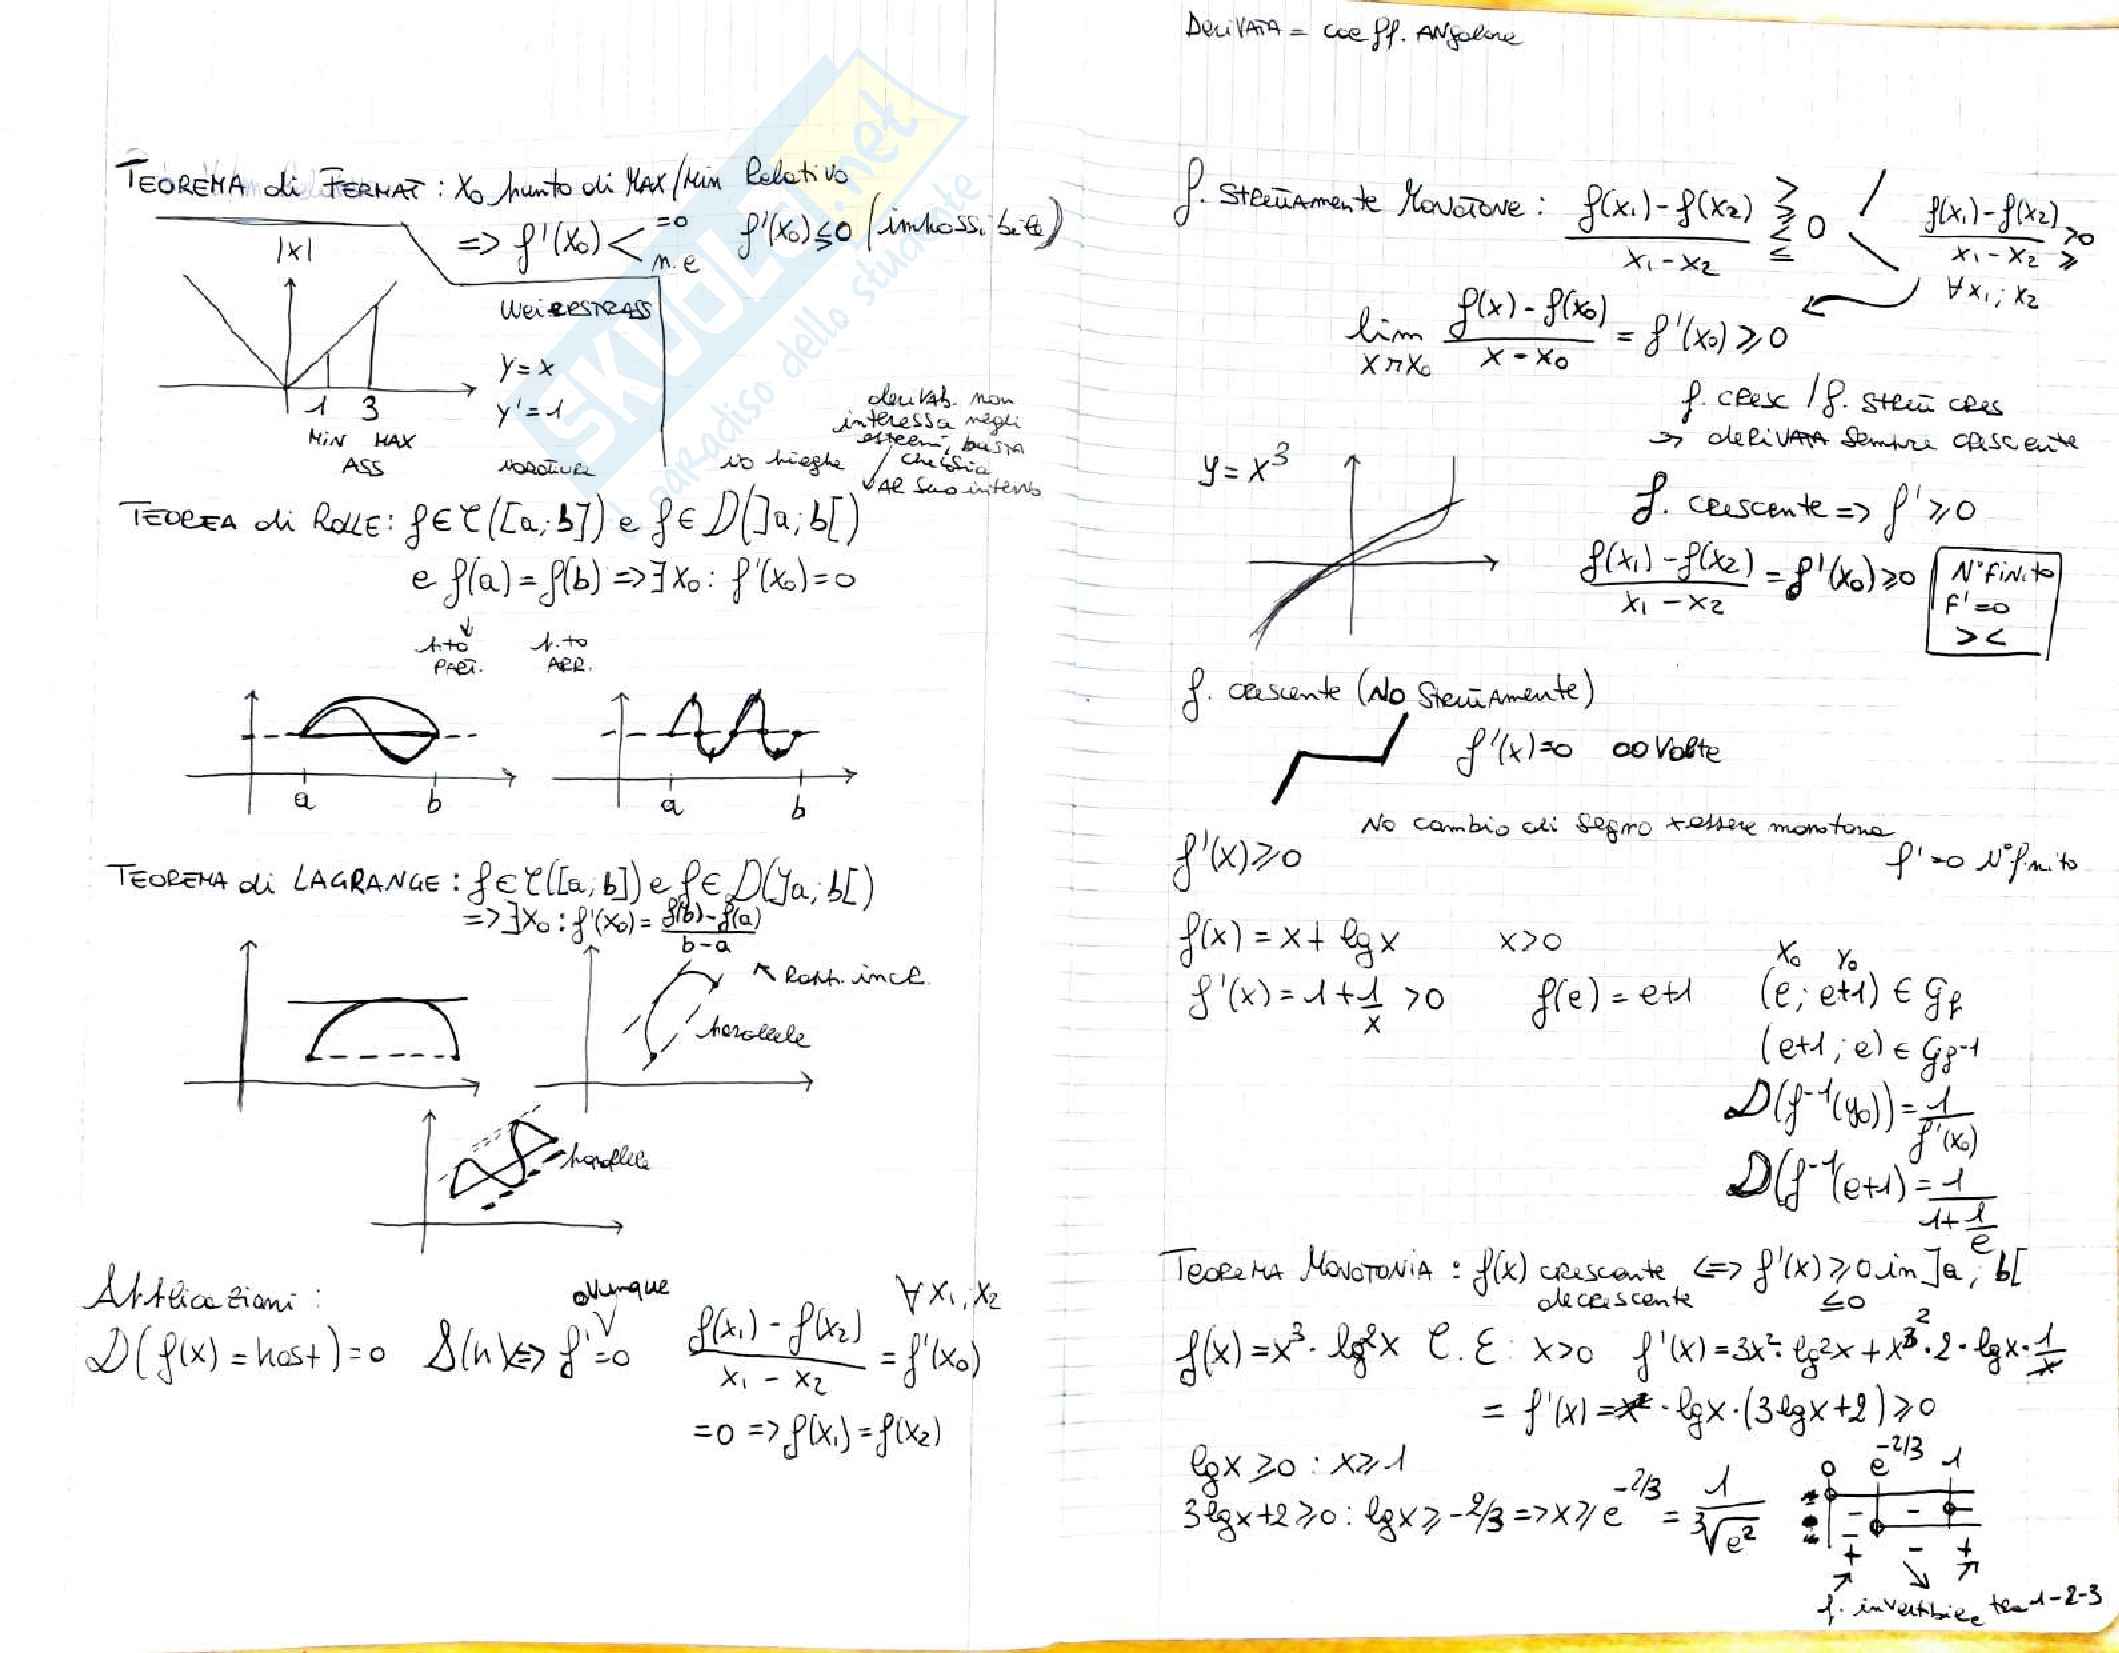 TEOREMA di FERMAT: x₀ punto di MAX/Min Relativo
=> f'(x₀) < =0 f'(x₀) ≤ 0 (impossibile)
n.e
|x|
WeieRSTRASS
y = x
y' = 1
1 3
MiN MAX
ASS
derivab. non
interessa negli
estremi, basta
che sia
AL suo interno
TEOREA di ROLLE: f ∈ C([a;b]) e f ∈ D(]a;b[)
e f(a) = f(b) => ∃ x₀: f'(x₀) = 0
p.to p.to
PART. ARR.
a b a b
TEOREMA di LAGRANGE: f ∈ C([a;b]) e f ∈ D(]a;b[)
=> ∃ x₀ : f'(x₀) = (f(b) - f(a))/(b - a)
Rapp. incr.
parallele
parallele
Applicazioni:
ovunque
D(f(x) = kost) = 0 f' = 0 (f(x₁) - f(x₂))/(x₁ - x₂) = f'(x₀) ∀ x₁, x₂
= 0 => f(x₁) = f(x₂)
DeriVATA = coeff. ANgolare
f. STRETTAmente MONOTONE: (f(x₁) - f(x₂))/(x₁ - x₂) > ≥ < ≤ 0 / (f(x₁) - f(x₂))/(x₁ - x₂) >0 ≥
∀ x₁; x₂
lim x→x₀ (f(x) - f(x₀))/(x - x₀) = f'(x₀) ≥ 0
f. CRESC / f. STRETT CRES
=> deRIVATA sempre CRESCente
y = x³
f. CRESCente => f' ≥ 0
(f(x₁) - f(x₂))/(x₁ - x₂) = f'(x₀) ≥ 0
N° FiNito
F' = 0
> <
f. CRESCente (No STRETTAmente)
f'(x) = 0 ∞ Volte
No cambio di segno x essere monotona
f'(x) ≥ 0 f' = 0 N° finito
f(x) = x + lg x x > 0
x₀ y₀
f'(x) = 1 + 1/x > 0 f(e) = e+1 (e; e+1) ∈ Gf
(e+1; e) ∈ Gf⁻¹
D(f⁻¹(y₀)) = 1/f'(x₀)
D(f⁻¹(e+1) = 1/(1 + 1/e)
TEOREMA MONOTONIA : f(x) crescente <=> f'(x) ≥ 0 in ]a; b[
decrescente ≤ 0
f(x) = x³ · lg²x C.E: x>0 f'(x) = 3x² · lg²x + x³ ² · 2 · lgx · 1/x
= f'(x) = x² · lgx · (3lgx+2) ≥ 0
lgx ≥ 0 : x ≥ 1
3lgx+2 ≥ 0 : lgx ≥ -2/3 => x ≥ e^-2/3 = 1/∛e²
0 e^-2/3 1
- -
-
+ - +
f. invertibile tra 1-2-3
SKUOLA.net
paradiso dello studente